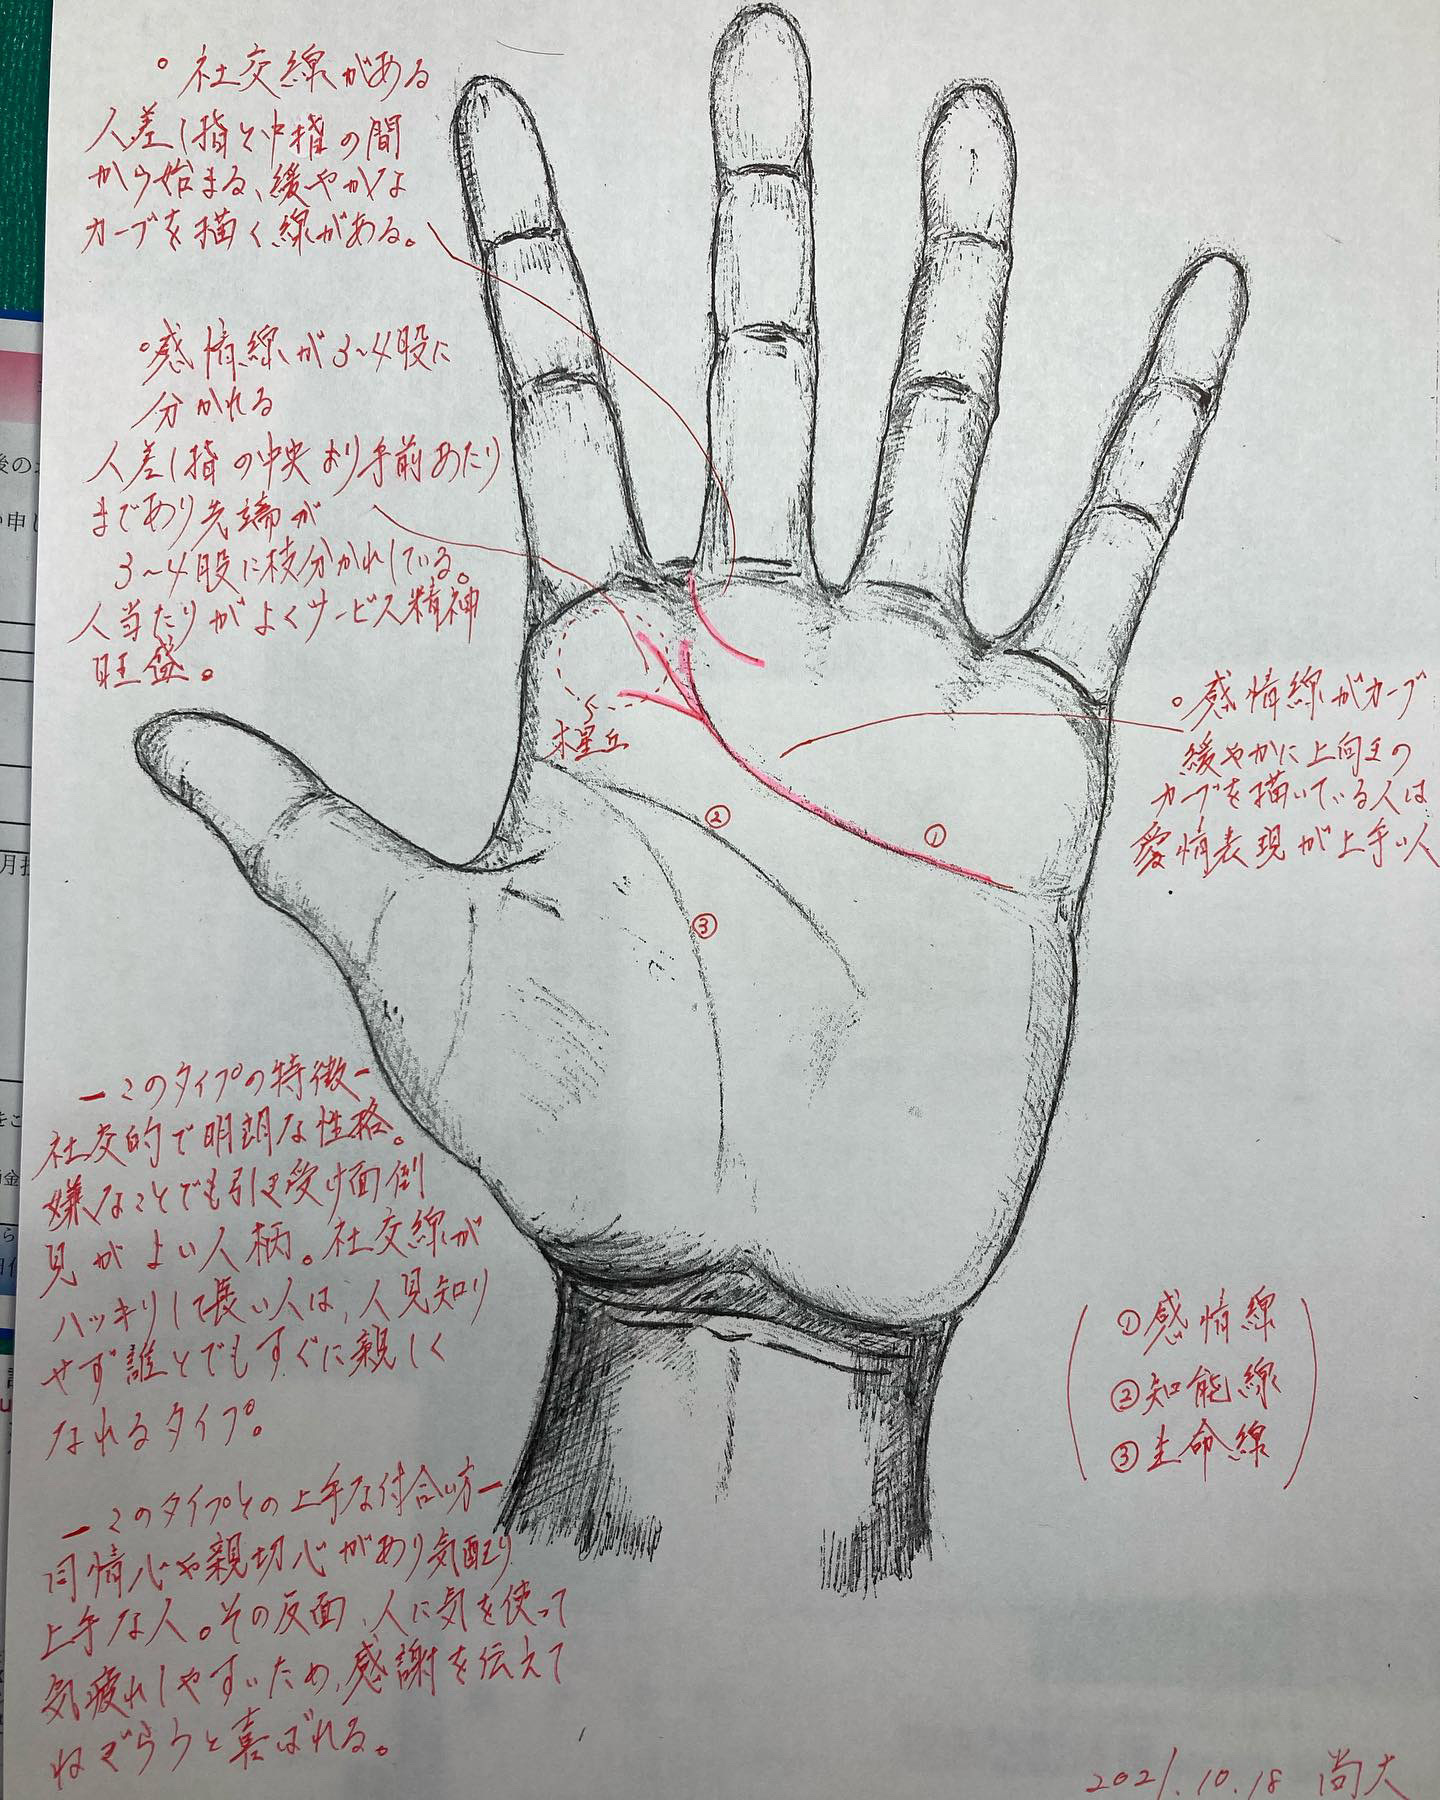 。社交線がある
人差し指と中指の間
から始まる、緩やかな
カーブを描く線がある。
。感情線が3~4股に
分かれる
人差し指の中央より手前あたり
まであり先端が
3~4股に枝分かれしている。
人当たりがよくサービス精神
旺盛。
木星丘
。感情線がカーブ
緩やかに上向きの
カーブを描いている人は
愛情表現が上手い人
②
①
③
ーこのタイプの特徴ー
社交的で明朗な性格。
嫌なことでも引き受け面倒
見がよい人柄。社交線が
ハッキリして長い人は、人見知り
せず誰とでもすぐに親しく
なれるタイプ。
①感情線
②知能線
③生命線
ーこのタイプとの上手な付合い方ー
同情心や親切心があり気配り
上手な人。その反面、人に気を使って
気疲れしやすいため、感謝を伝えて
ねぎらうと喜ばれる。
2021.10.18 尚大
後の
申し
月
金